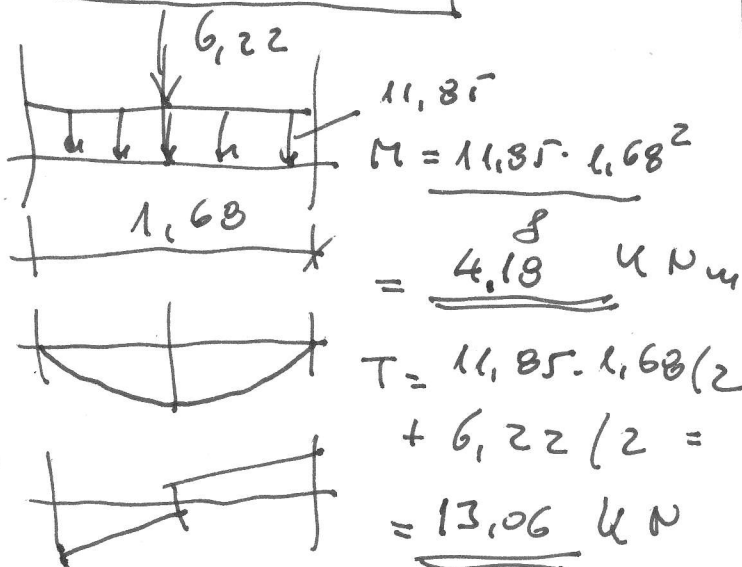 6,22
11,85
M = 11,85 · 1,68²
8
1,68
= 4,18 KNm
T = 11,85 · 1,68/2
+ 6,22/2 =
= 13,06 KN